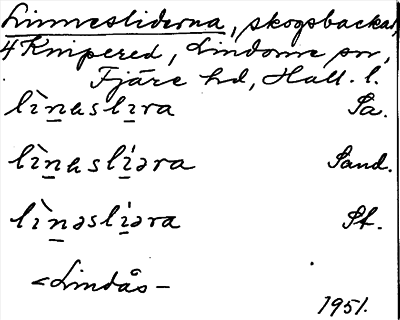 Linnesliderna, skogsbackar,
4 Knipered, Lindome sn,
Fjäre hd, Hall. l.
lìnasli̱ra Sa.
lìnaslíəra Sand.
lìnəslíəra St.
<Lindås-
1951.